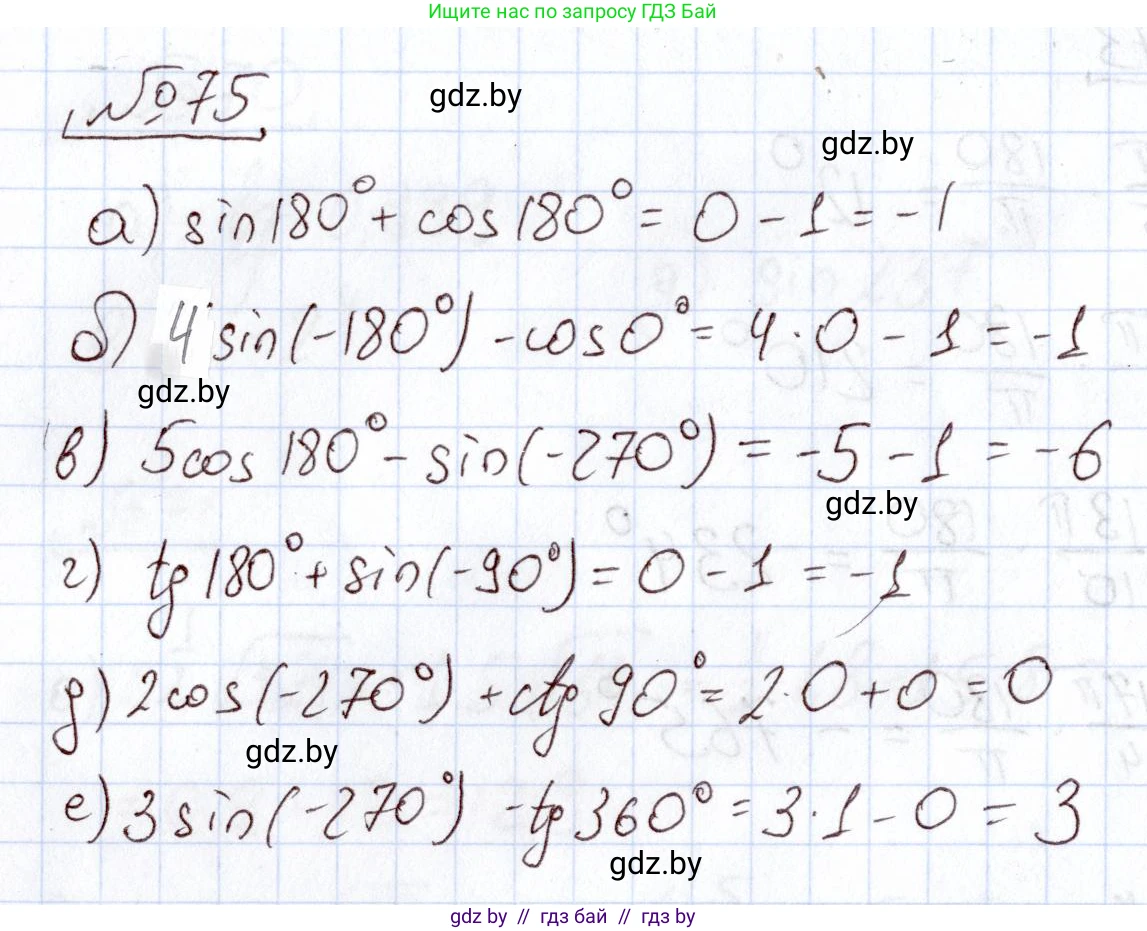 Ищите нас по запросу ГДЗ Бай
№75
gdz.by
gdz.by
а) sin180° + cos180° = 0 - 1 = -1
б) 4 sin(-180°) - cos0° = 4·0 - 1 = -1
gdz.by
в) 5cos180° - sin(-270°) = -5 - 1 = -6
gdz.by
г) tg180° + sin(-90°) = 0 - 1 = -1
д) 2cos(-270°) + ctg90° = 2·0 + 0 = 0
gdz.by
е) 3sin(-270°) - tg360° = 3·1 - 0 = 3
gdz.by
gdz by // гдз бай // гдз by